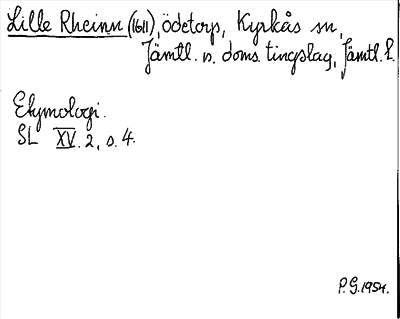 Lille Rheinn (1611), ödetorp, Kyrkås sn,
Jämtl. n. doms. tingslag, Jämtl. l.
Etymologi.
SL XV. 2, s. 4.
P.G. 1954.